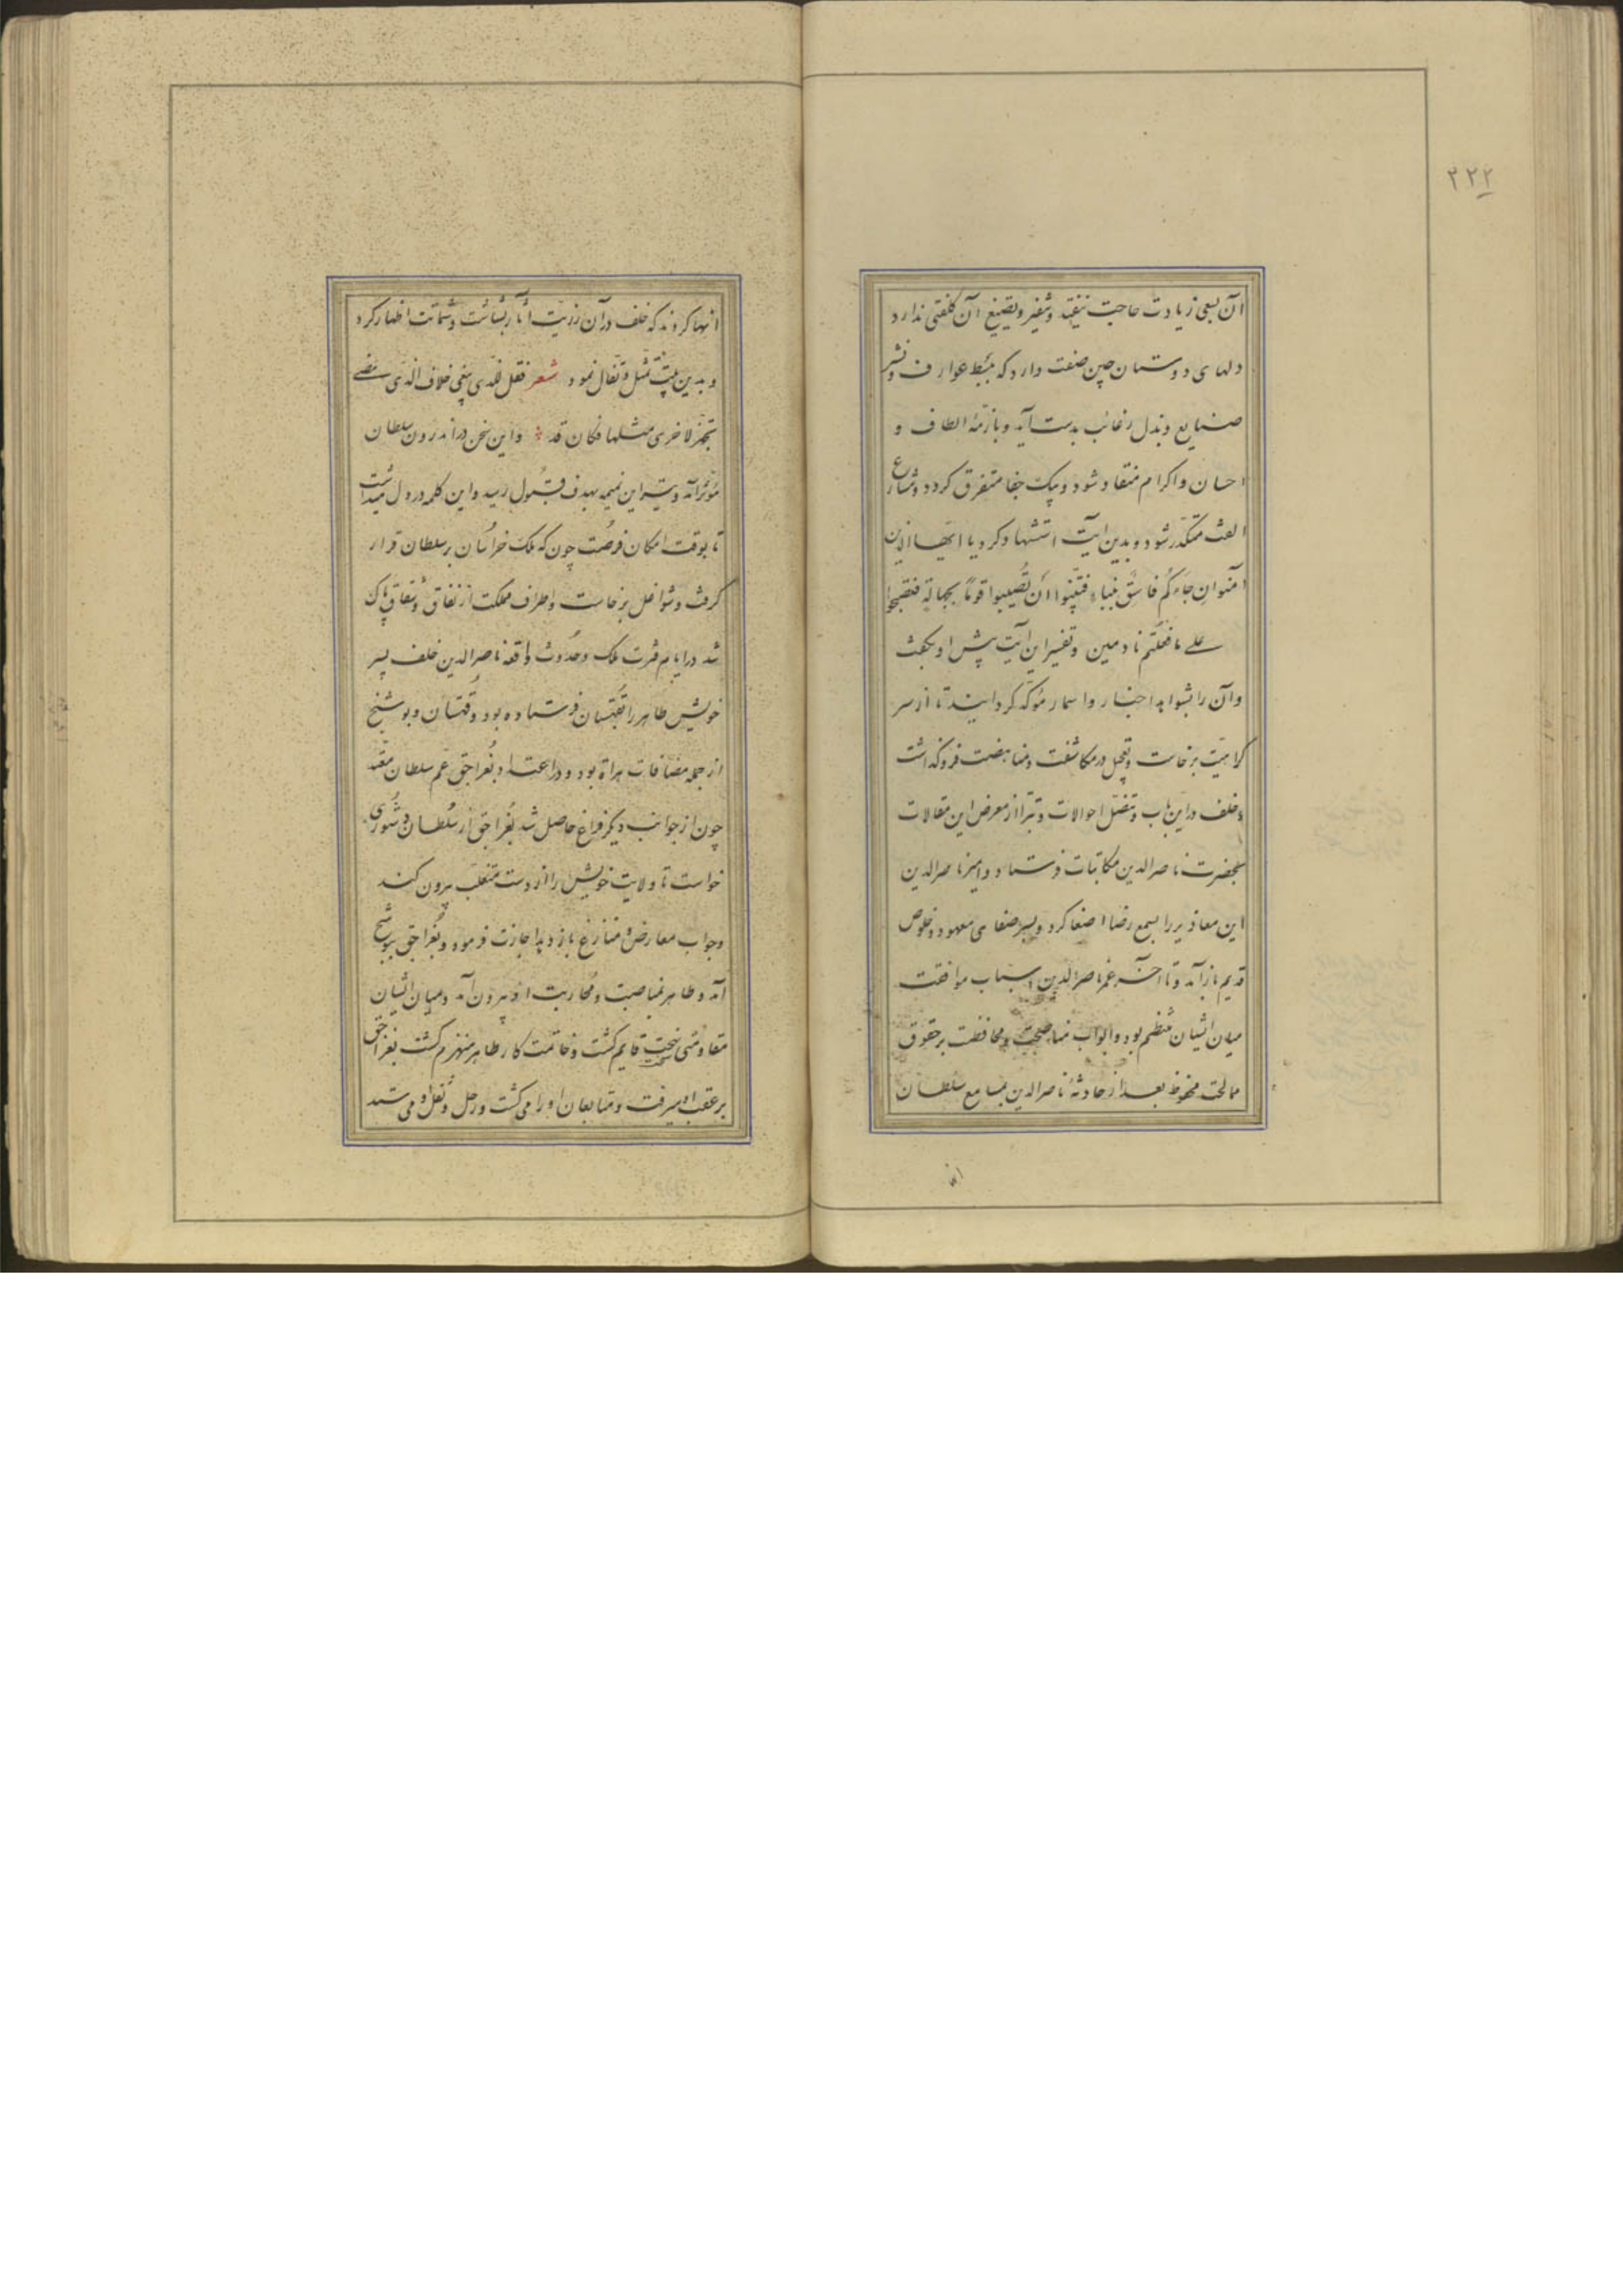 ۲۲۲
آن بسعی زیادت حاجت نیفتد و تنفیر و تضییع آن کلفتی ندارد
دلهای دوستان چین صفت دارد که ببسط عوارف و نشر
صنایع و بذل رغائب بدست آید و بازمّهٔ الطاف و
احسان و اکرام منقاد شود و بیک جفا متفرق کردد و مشارع
الفت متکدّر شود و بدین آیت استشهاد کرد یا ایّها الذین
آمنوا ان جاءکُم فاسُق بنباء فتبیّنوا اَن تُصیبوا قومًا بجهالة فتصبحوا
علی ما فعلتم نادمین و تفسیر این آیت پیش او بکفت
و آن را بشواهد اخبار و اسمار مؤکد کردانید تا از سر
کراهیّت برخاست و تعجیل در مکاشفت و مناهضت فروکذاشت
و خلف در این باب و تنصّل احوالات و تبرّا از معرض این مقالات
بحضرت ناصرالدین مکاتبات فرستاد و امیر ناصرالدین
این معاذیر را بسمع رضا اصغا کرد و بسر صفای معهود و خلوص
قدیم باز آمد و تا آخر عمر ناصرالدین اسباب موافقت
میان ایشان منظم بود و ابواب مناصحت و محافظت بر حقوق
ممالحت محفوظ بعد از حادثهٔ ناصرالدین بمسامع سلطان
انها
انها کردند که خلف در آن رزیّت آثار بشاشت و شماتت اظهار کرد
و بدین بیت تمثل و تفال نمود شعر فقل للذی یبغی خلاف الذی مضی
تجهّز لاخری مثلها فکان قد و این سخن در اندرون سلطان
مؤثر آمد و تیر این نمیمه بهدف قبُول رسید و این کلمه در دل میداشت
تا بوقت امکان فرصُت چون که ملک خراسان بر سلطان قرار
کرفت و شواغل برخاست و اطراف مملکت از نفاق و شقاق پاک
شد در ایام فترت ملک و حُدوث واقعه ناصرالدین خلف پسر
خویش طاهر را بقُهستان فرستاده بود و قُهستان و بوشنج
از جمله مضافات هراة بود و در اعتداد بُغراجق عَم سلطان معتد
چون از جوانب دیکر فراغ حاصل شد بُغراجق از سُلطان دستُوری
خواست تا ولایت خویش را از دست متغلب بیرون کند
و جواب معارض و منازع باز دهد اجازت فرمود و بُغراجق ببوشنج
آمد و طاهر بمناصبت و مُحاربت او بیرون آمد و میان ایشان
مقاومتی سخت قایم کشت و خاتمت کار طاهر منهزم کشت بغراجق
بر عقب او میرفت و متابعان او را می کشت و رحل و ثقل او می ستد